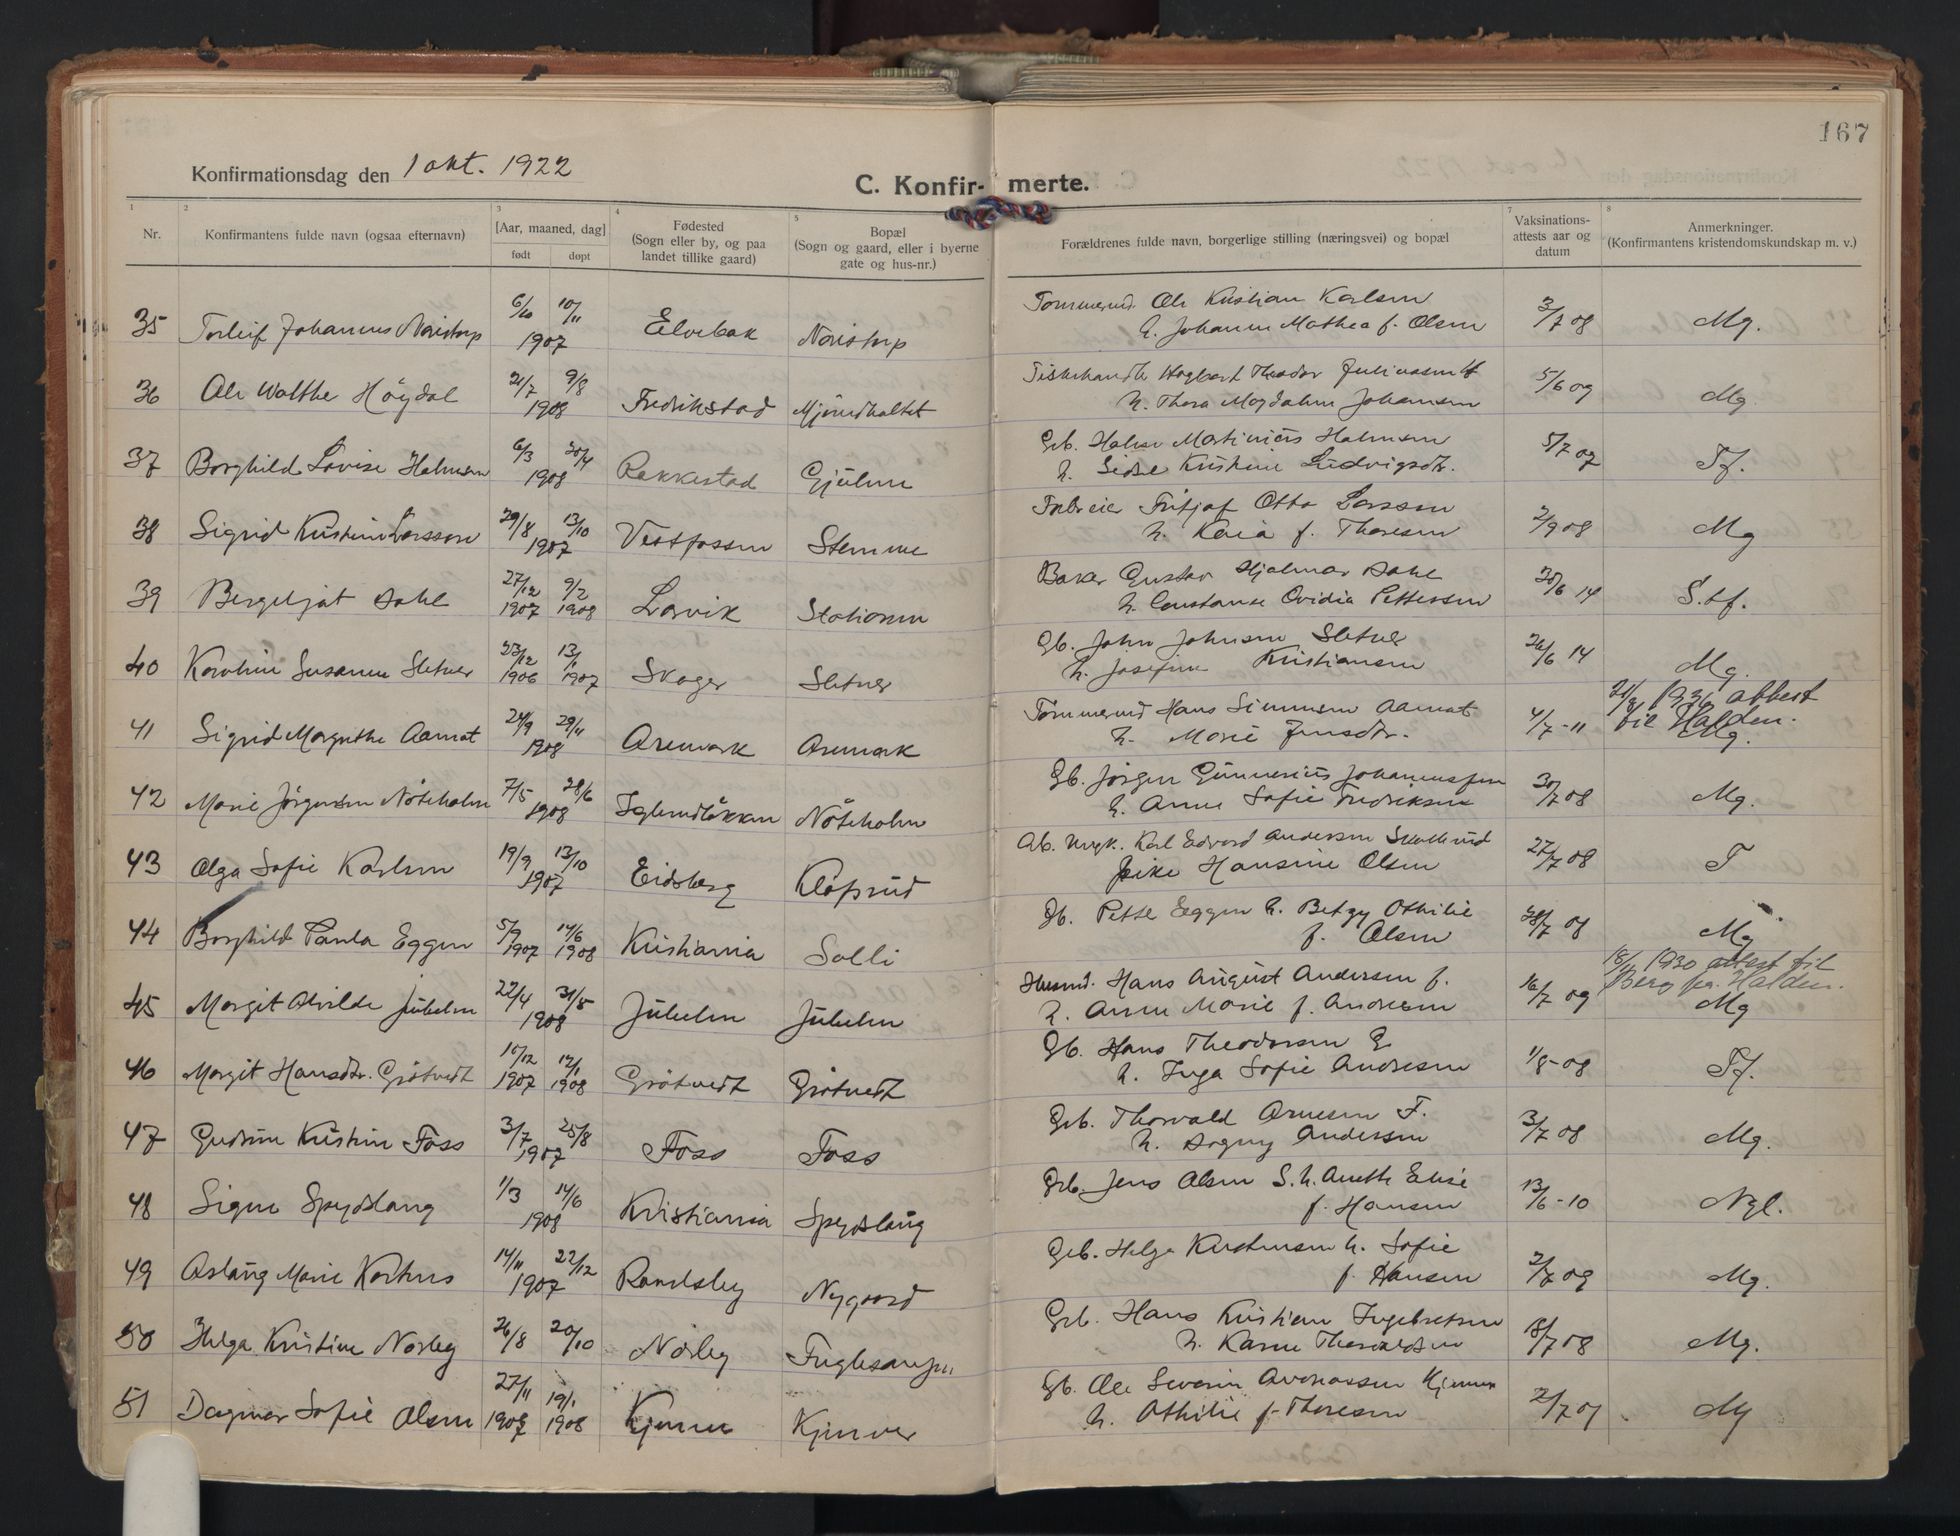 167
Konfirmationsdag den 1 okt. 1922
C. Konfir- merte.
1 2 3 4 5 7 8
Nr.
Konfirmantens fulde navn (ogsaa efternavn)
[Aar, maaned, dag]
født døpt
Fødested
(Sogn eller by, og paa
landet tillike gaard)
Bopæl
(Sogn og gaard, eller i byerne
gate og hus-nr.)
Forældrenes fulde navn, borgerlige stilling (næringsvei) og bopæl
Vaksinations-
attests aar og
datum
Anmerkninger.
(Konfirmantens kristendomskundskap m. v.)
35 Torleif Johannes 6/10 10/11 1907 Elvebak
Ole Kristian Karlsen 3/7 08 Mg.
h. Johanne Mathea f. Olsen
36 Ole Walther Høgdal 21/7 9/8 1908 Fredrikstad
5/6 09 Mg.
h. Thora Magdalene Johansen
37 Borghild Lovise Halvorsen 6/3 20/4 1908 Rakkestad Gjølsen
Gb. Martinius 5/7 09 Tf.
h. Sidsel Kristine Ludvigsdtr.
38 Sigrid Kristine Larsson 29/8 13/10 1907 Vestfossen Stemme
Fritjof Otto Larsson 2/9 08 Mg
h. Kaia f. Thoresen
39 Bergeljot Dahl 27/12 1907 9/2 1908 Larvik Stationen
Baker Gustav Hjalmar Dahl 30/6 14 S.tf.
h. Constanse Ovidia Pettersen
40 Karoline Susanne Sletner 23/12 1906 13/1 1907 Skoger Sletner
Gb. John Johnsen Sletner 26/6 14 Mg.
h. Josefine Kristiansen
41 Sigrid Margrethe Aamot 24/9 29/11 1908 Aremark Aremark
Tømmermd Hans Simensen Aamot 4/7-11 1936 attest
til Halden.
h. Marie Jensdtr. Mg.
42 Marie Jørgensen Nøteholm 7/5 28/6 1908 Nøteholm
Gb. Jørgen Gunnerius 30/7 08 Mg.
h. Anne Sofie Fredriksen
43 Olga Sofie Karlsen 19/9 13/10 1907 Eidsberg Kløfsrud
Ub. ungk. Karl Edvard Andersen 27/7 08 T
pike Hansine Olsen
44 Borghild Paula Eggen 5/9 1907 14/6 1908 Kristiania Solli
Gb. Petter Eggen h. Betzy Othilie 28/7 08 Mg
f. Olsen
45 Margit Alvilde 22/4 31/5 1908
Husmd. Hans August Andersen 16/7 09 18/11 1930 attest til
Berg pr. Halden.
h. Anne Marie f. Andresen Mg
46 Margit Hansdtr. Grøtvedt 10/12 1907 12/1 1908 Grøtvedt Grøtvedt
Gb. Hans Theodorsen G. 1/8-08 Tf.
h. Inga Sofie Andresen
47 Gudrun Kristine Foss 3/7 25/8 1907 Foss Foss
Grb. Thorvald Arnesen F. 3/7 08 Mg.
h. Dagny Andersen
48 Signe Spydslaug 1/3 14/6 1908 Kristiania Spydslaug
Grb. Jens Olsen S. h. Anette Elise 13/6-10 Ngl.
f. Hansen
49 Aslaug Marie 14/11 22/12 1907 Nygaard
Grb. Helge Kristensen h. Sofie 2/7 09 Mg.
f. Hansen
50 Helga Kristine Nørby 26/8 20/10 Nørby
Grb. Hans Kristian Ingebretsen 18/7 08 Mg.
h. Karen Thorvaldsen
51 Dagmar Sofie Olsen 27/11 19/1 1908 Kjenner Kjenner
Gb. Ole Severin Kjenner 2/7 09 Mg
h. Othilie f. Thoresen